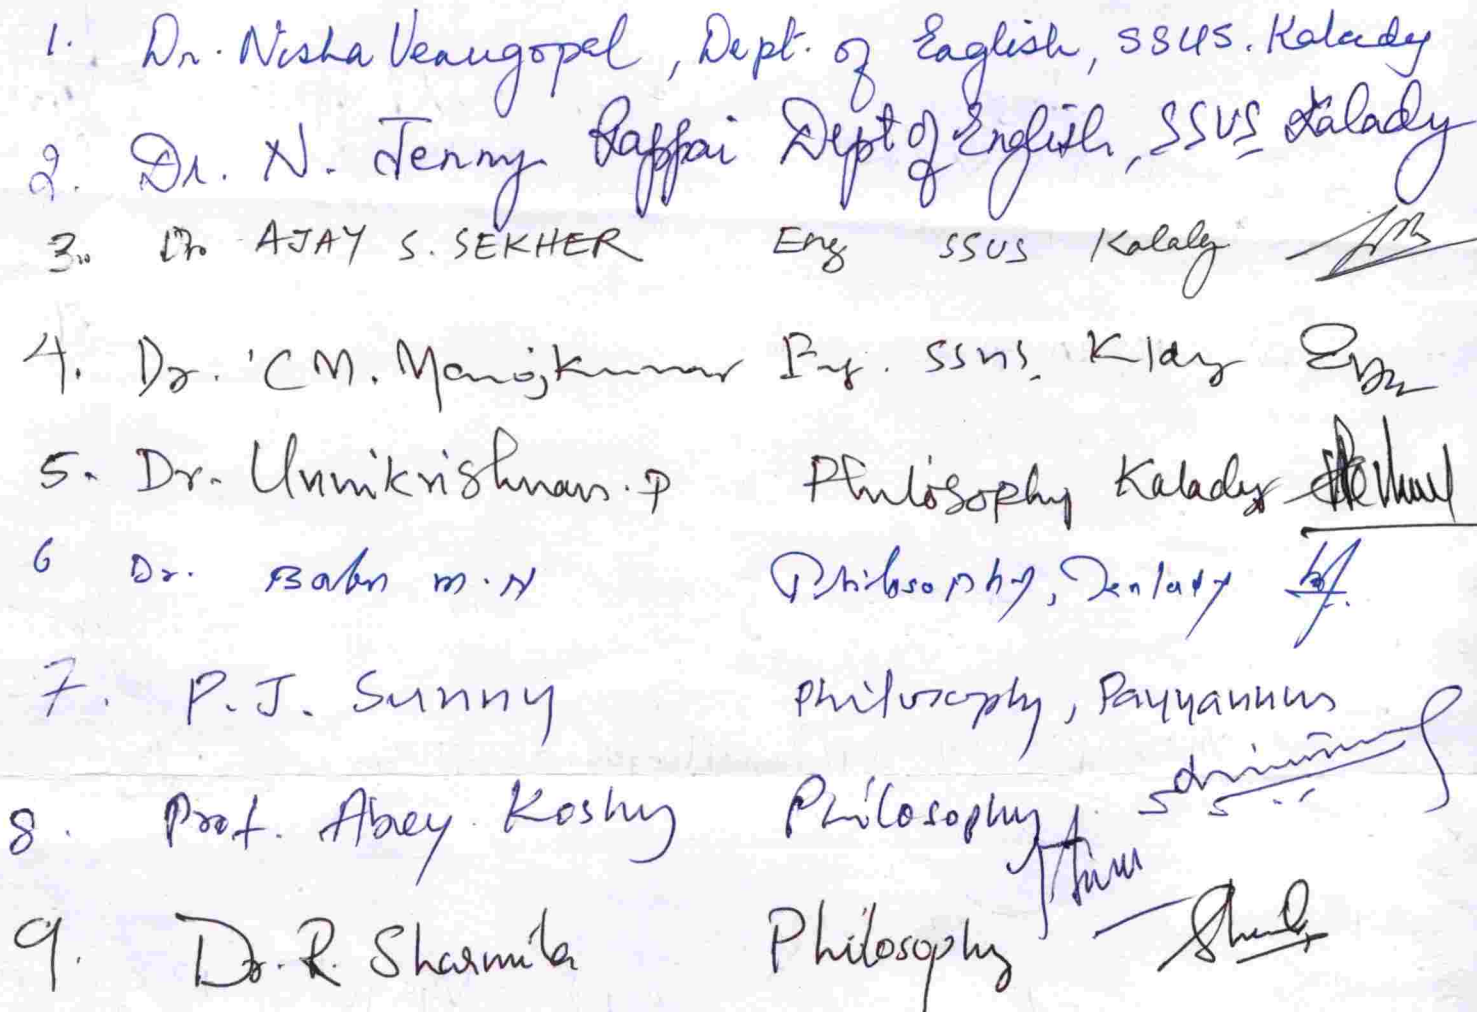 1. Dr. Nisha Venugopal, Dept. of English, SSUS. Kalady
2. Dr. N. Jenny Rappai Dept of English, SSUS Kalady
3. Dr AJAY S. SEKHER Eng SSUS Kalady
4. Dr. CM. Manojkumar Eng. SSUS. Klday
5. Dr. Unnikrishnan. P Philosophy Kalady
6 Dr. Babu M. N Philosophy,
7. P. J. Sunny Philosophy, Payyannur
8. Prof. Abey Koshy Philosophy
9. Dr. R. Sharmila Philosophy